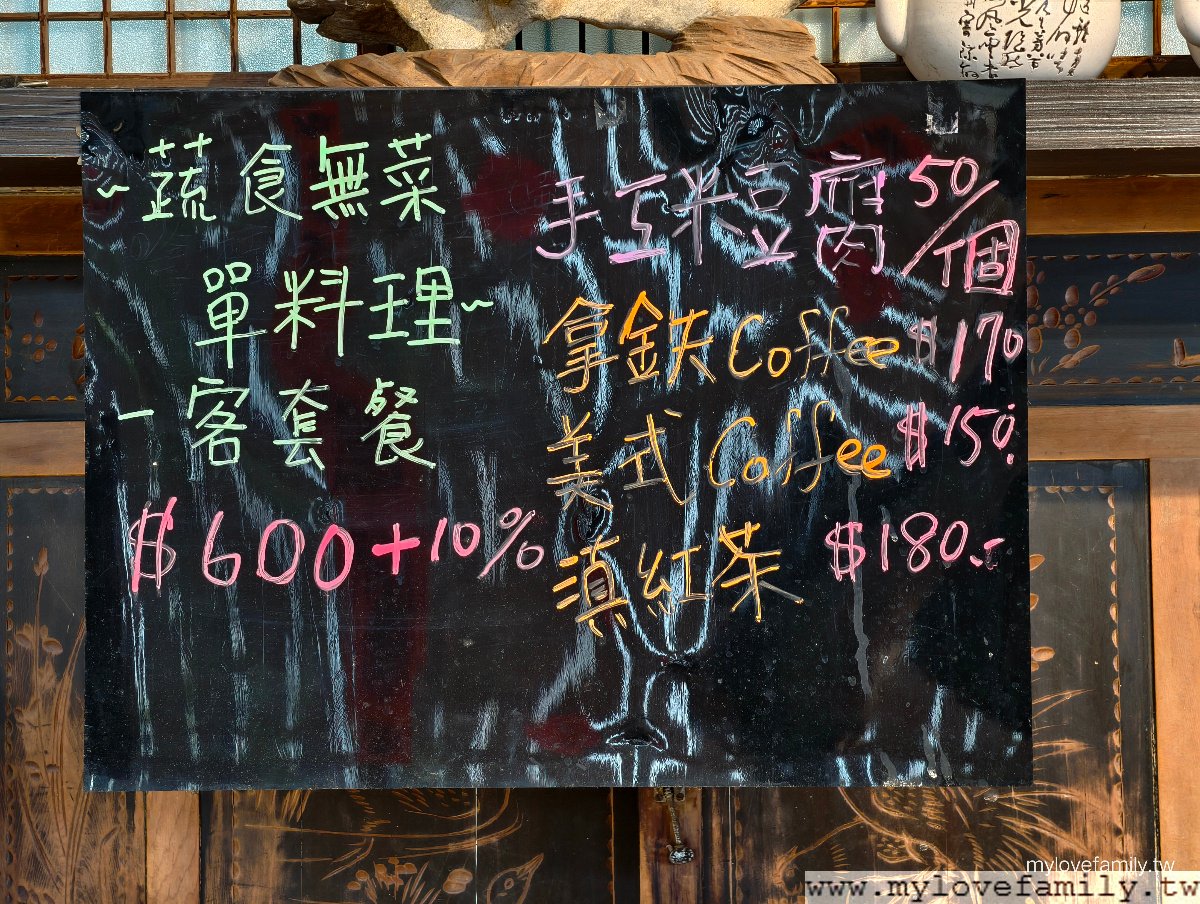 ~蔬食無菜
單料理~
一客套餐
$600+10%
手工米豆腐 50/個
拿鉄Coffee $170
美式Coffee $150.
滇紅茶 $180.-
mylovefamily.tw
www.mylovefamily.tw